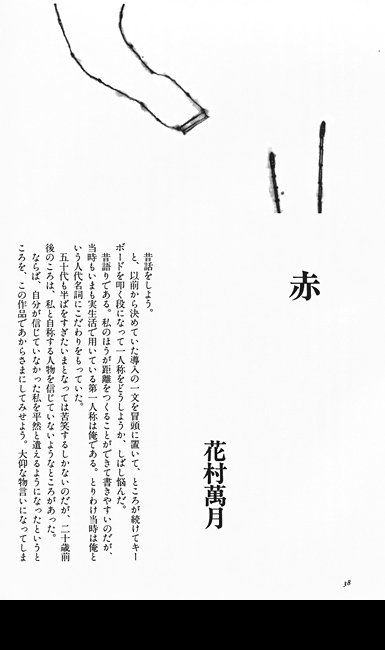 赤
花村萬月
昔話をしよう。
と、以前から決めていた導入の一文を冒頭に置いて、ところが続けてキー
ボードを叩く段になって一人称をどうしようか、しばし悩んだ。
昔語りである。私のほうが距離をつくることができて書きやすいのだが、
当時もいまも実生活で用いている第一人称は俺である。とりわけ当時は俺と
いう人代名詞にこだわりをもっていた。
五十代も半ばをすぎたいまとなっては苦笑するしかないのだが、二十歳前
後のころは、私と自称する人物を信じていないようなところがあった。
ならば、自分が信じていなかった私を平然と遣えるようになったというと
ころを、この作品であからさまにしてみせよう。大仰な物言いになってしま
38